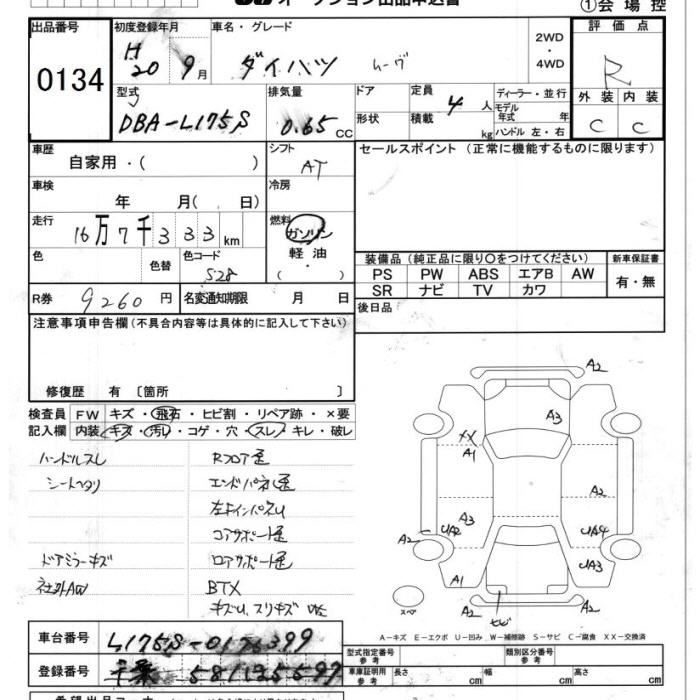 オークション出品申込書
①会場控
出品番号
0134
初度登録年月
H20 9月
車名・グレード
ダイハツ ムーヴ
2WD
・
4WD
評価点
R
外装 内装
C C
型式
DBA-L175S
排気量
0.65 CC
ドア
形状
定員
4 人
積載
kg
ディーラー・並行
モデル年式 年
ハンドル 左・右
車歴
自家用・( )
シフト
AT
セールスポイント (正常に機能するものに限ります)
車検
年 月( 日)
冷房
走行
16万7千333km
燃料
ガソリン
軽油
( )
色
色替
色コード
S28
装備品(純正品に限り○をつけてください)
新車保証書
PS PW ABS エアB AW
有・無
SR ナビ TV カワ
R券 9260円
名変通知期限 月 日
後日品
注意事項申告欄(不具合内容等は具体的に記入して下さい)
修復歴 有 〔箇所 〕
検査員 FW キズ・飛石・ヒビ割・リペア跡・×要
記入欄 内装 キズ・汚レ・コゲ・穴・スレ・キレ・破レ
ハンドルスレ
シートヘタリ
ドアミラーキズ
社外AW
Rフロア歪
エンドパネル歪
左キインパネル
コアサポート歪
ロアサポート歪
BTX
A2
A3
XX
A1
A2
A3
A2
UA2
UA4
UA3
A1
サビ
A2
スペア
A-キズ E-エクボ U-凹み W-補修跡 S-サビ C-腐食 XX-交換済
車台番号 L175S-0176399
登録番号 千葉 581
型式指定番号
参考
類別区分番号
参考
車庫証明用
参考
長さ cm
幅 cm
高さ cm